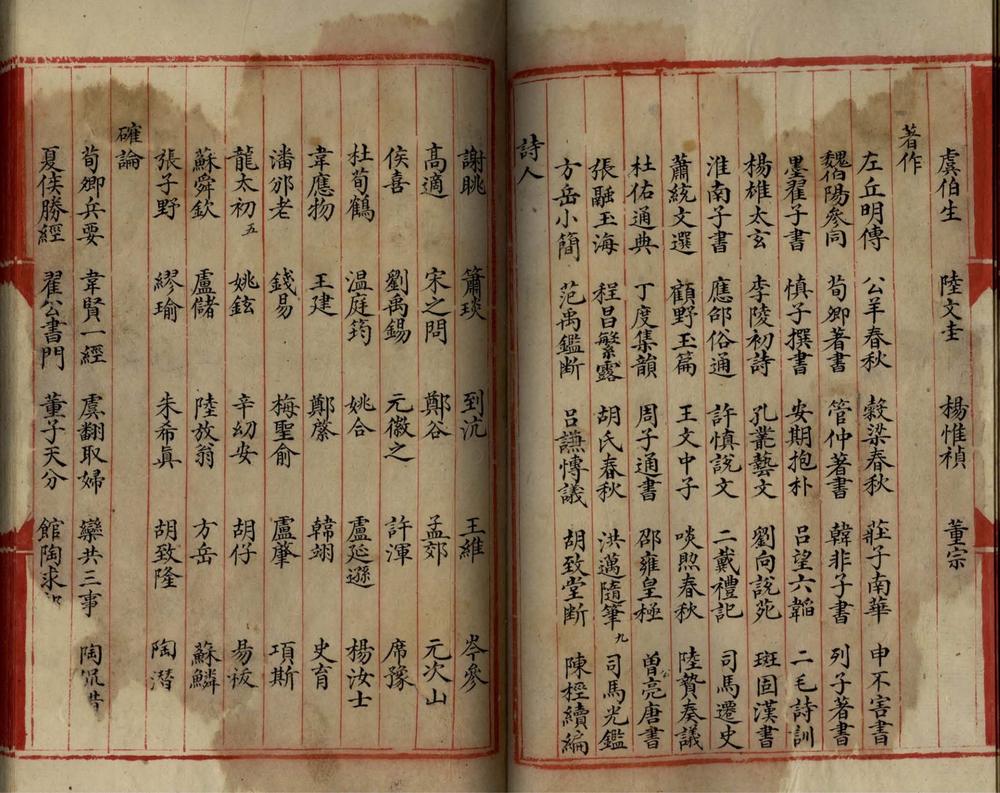 虞伯生 陸文圭 楊惟禎 董宗
著作
左丘明傳 公羊春秋 穀梁春秋 莊子南華 申不害書
魏伯陽參同 荀卿著書 管仲著書 韓非子書 列子著書
墨翟子書 慎子撰書 安期抱朴 呂望六韜 二毛詩訓
楊雄太玄 李陵初詩 孔叢藝文 劉向說苑 班固漢書
淮南子書 應邵俗通 許慎說文 二戴禮記 司馬遷史
蕭統文選 顧野玉篇 王文中子 啖喣春秋 陸贄奏議
杜佑通典 丁度集韻 周子通書 邵雍皇極 曾亮唐書
張融玉海 程昌繁露 胡氏春秋 洪邁隨筆 九 司馬光鑑
方岳小簡 范禹鑑断 呂謙博議 胡致堂断 陳桱續編
詩人
謝眺 簫琰 到沆 王維 岑參
高適 宋之問 鄭谷 孟郊 元次山
侯喜 劉禹錫 元徽之 許渾 席豫
杜荀鶴 温庭筠 姚合 盧延遜 楊汝士
韋應物 王建 鄭縻 韓翊 史育
潘邠老 錢易 梅聖俞 盧肇 項斯
龍太初 五 姚鉉 辛幼安 胡仔 昜祓
蘇舜欽 盧儲 陸放翁 方岳 蘇鱗
張子野 繆瑜 朱希眞 胡致隆 陶潛
確論
荀卿兵要 韋賢一經 虞翻取婦 欒共三事 陶侃惜
夏侯勝經 翟公書門 董子天分 館陶求